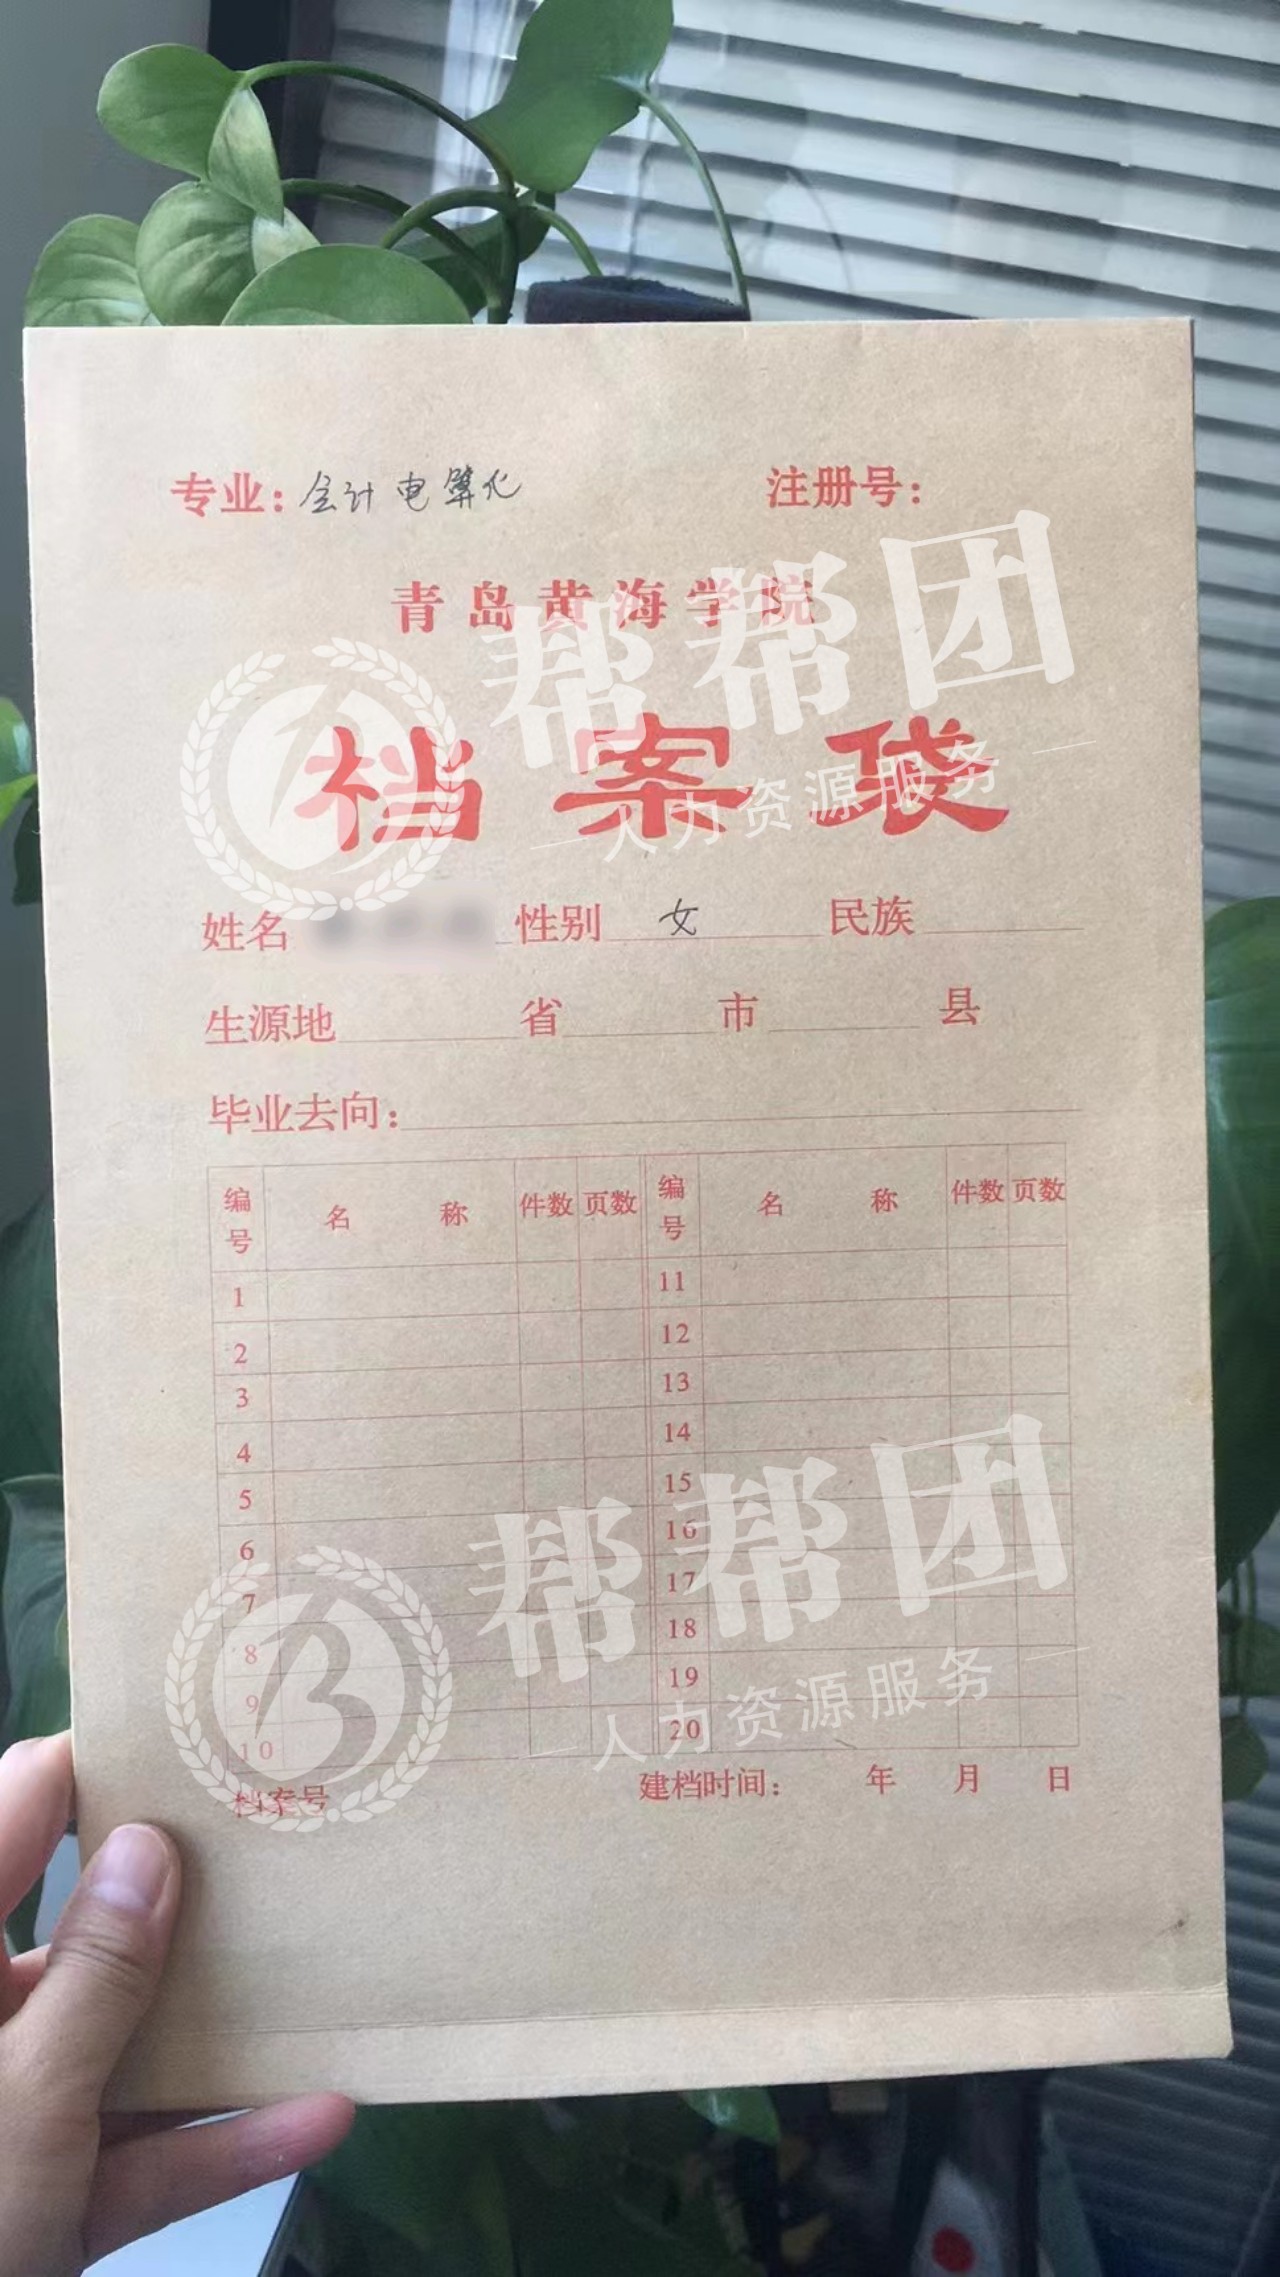 专业：会计电算化 注册号：
青岛黄海学院
档案袋
姓名 性别 女 民族
生源地 省 市 县
毕业去向：
编号 名称 件数 页数 编号 名称 件数 页数
1 11
2 12
3 13
4 14
5 15
6 16
7 17
8 18
9 19
10 20
档案号 建档时间： 年 月 日
帮帮团
人力资源服务
帮帮团
人力资源服务